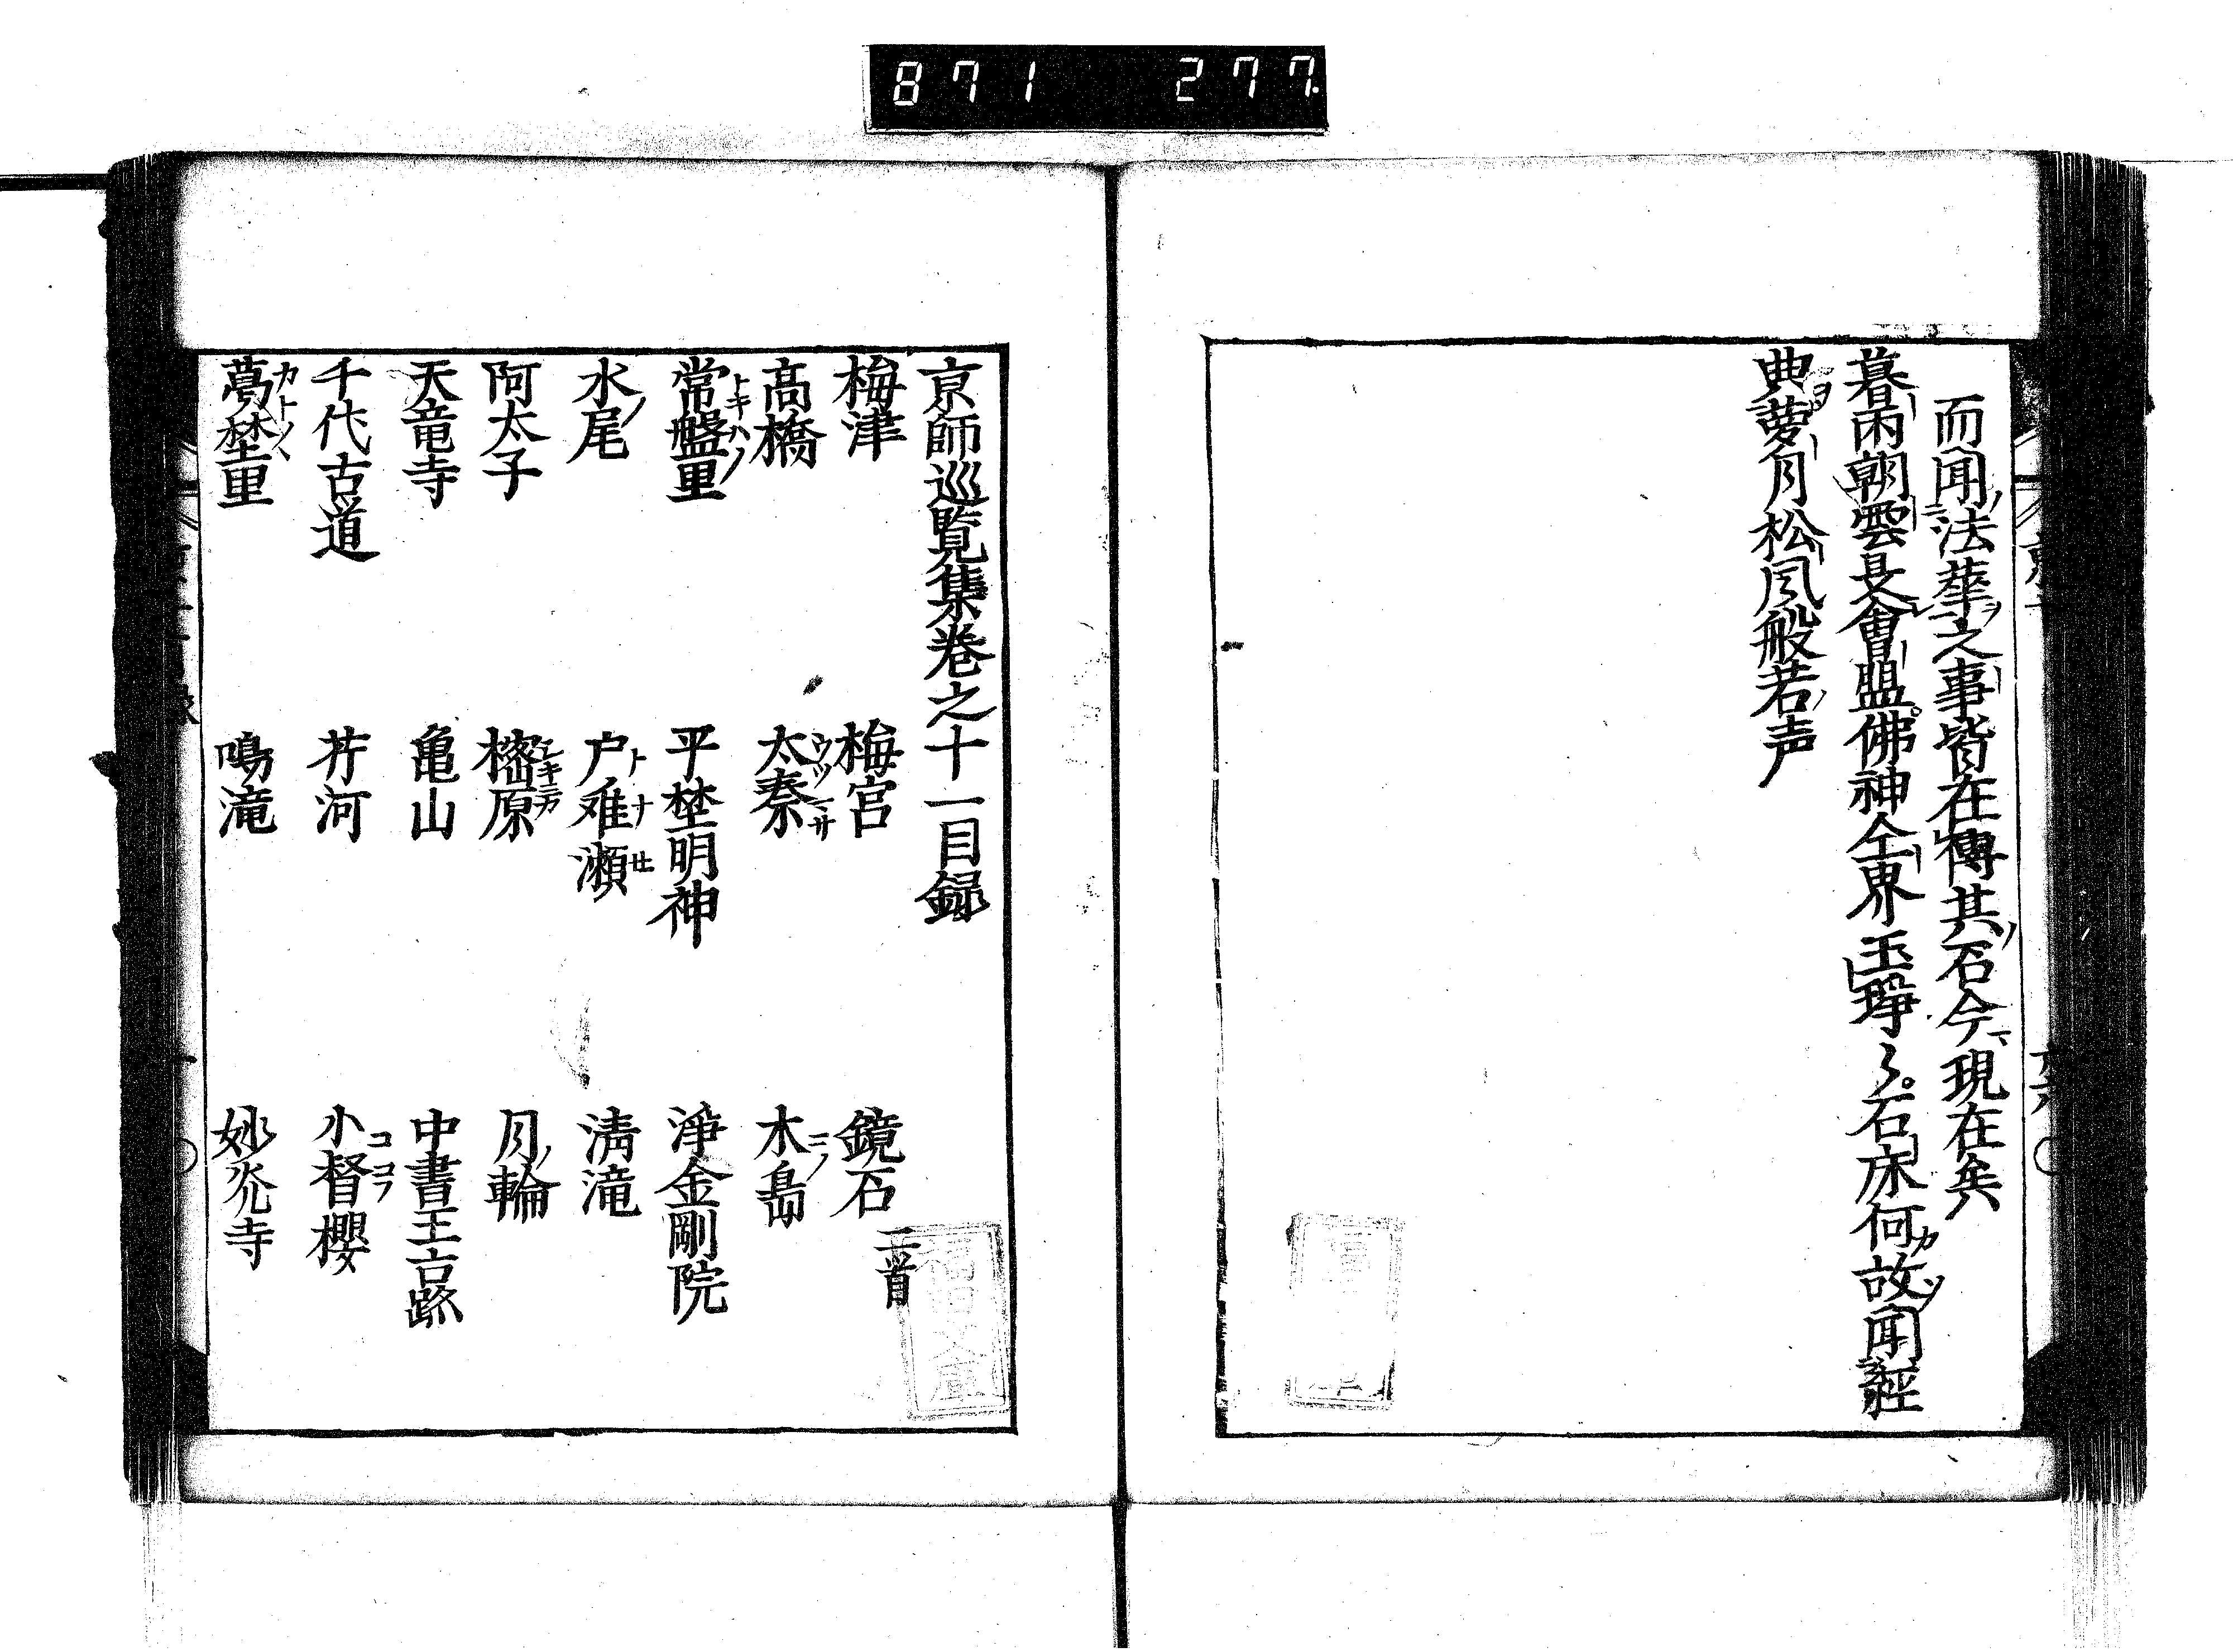 871 277
而聞法華之事皆在傳其石今現在矣
暮雨朝雲是會盟佛神全界玉琤々石床何故聞經
典夢月松風般若声
京師巡覧集巻之十一目録
梅津 梅宮 鏡石 二首
髙橋 太秦 木島
常盤里 平埜明神 淨金剛院
水尾 户难瀬 清滝
阿太子 樒原 月輪
天竜寺 亀山 中書王古跡
千代古道 芹河 小督櫻
葛埜里 鳴滝 妙光寺